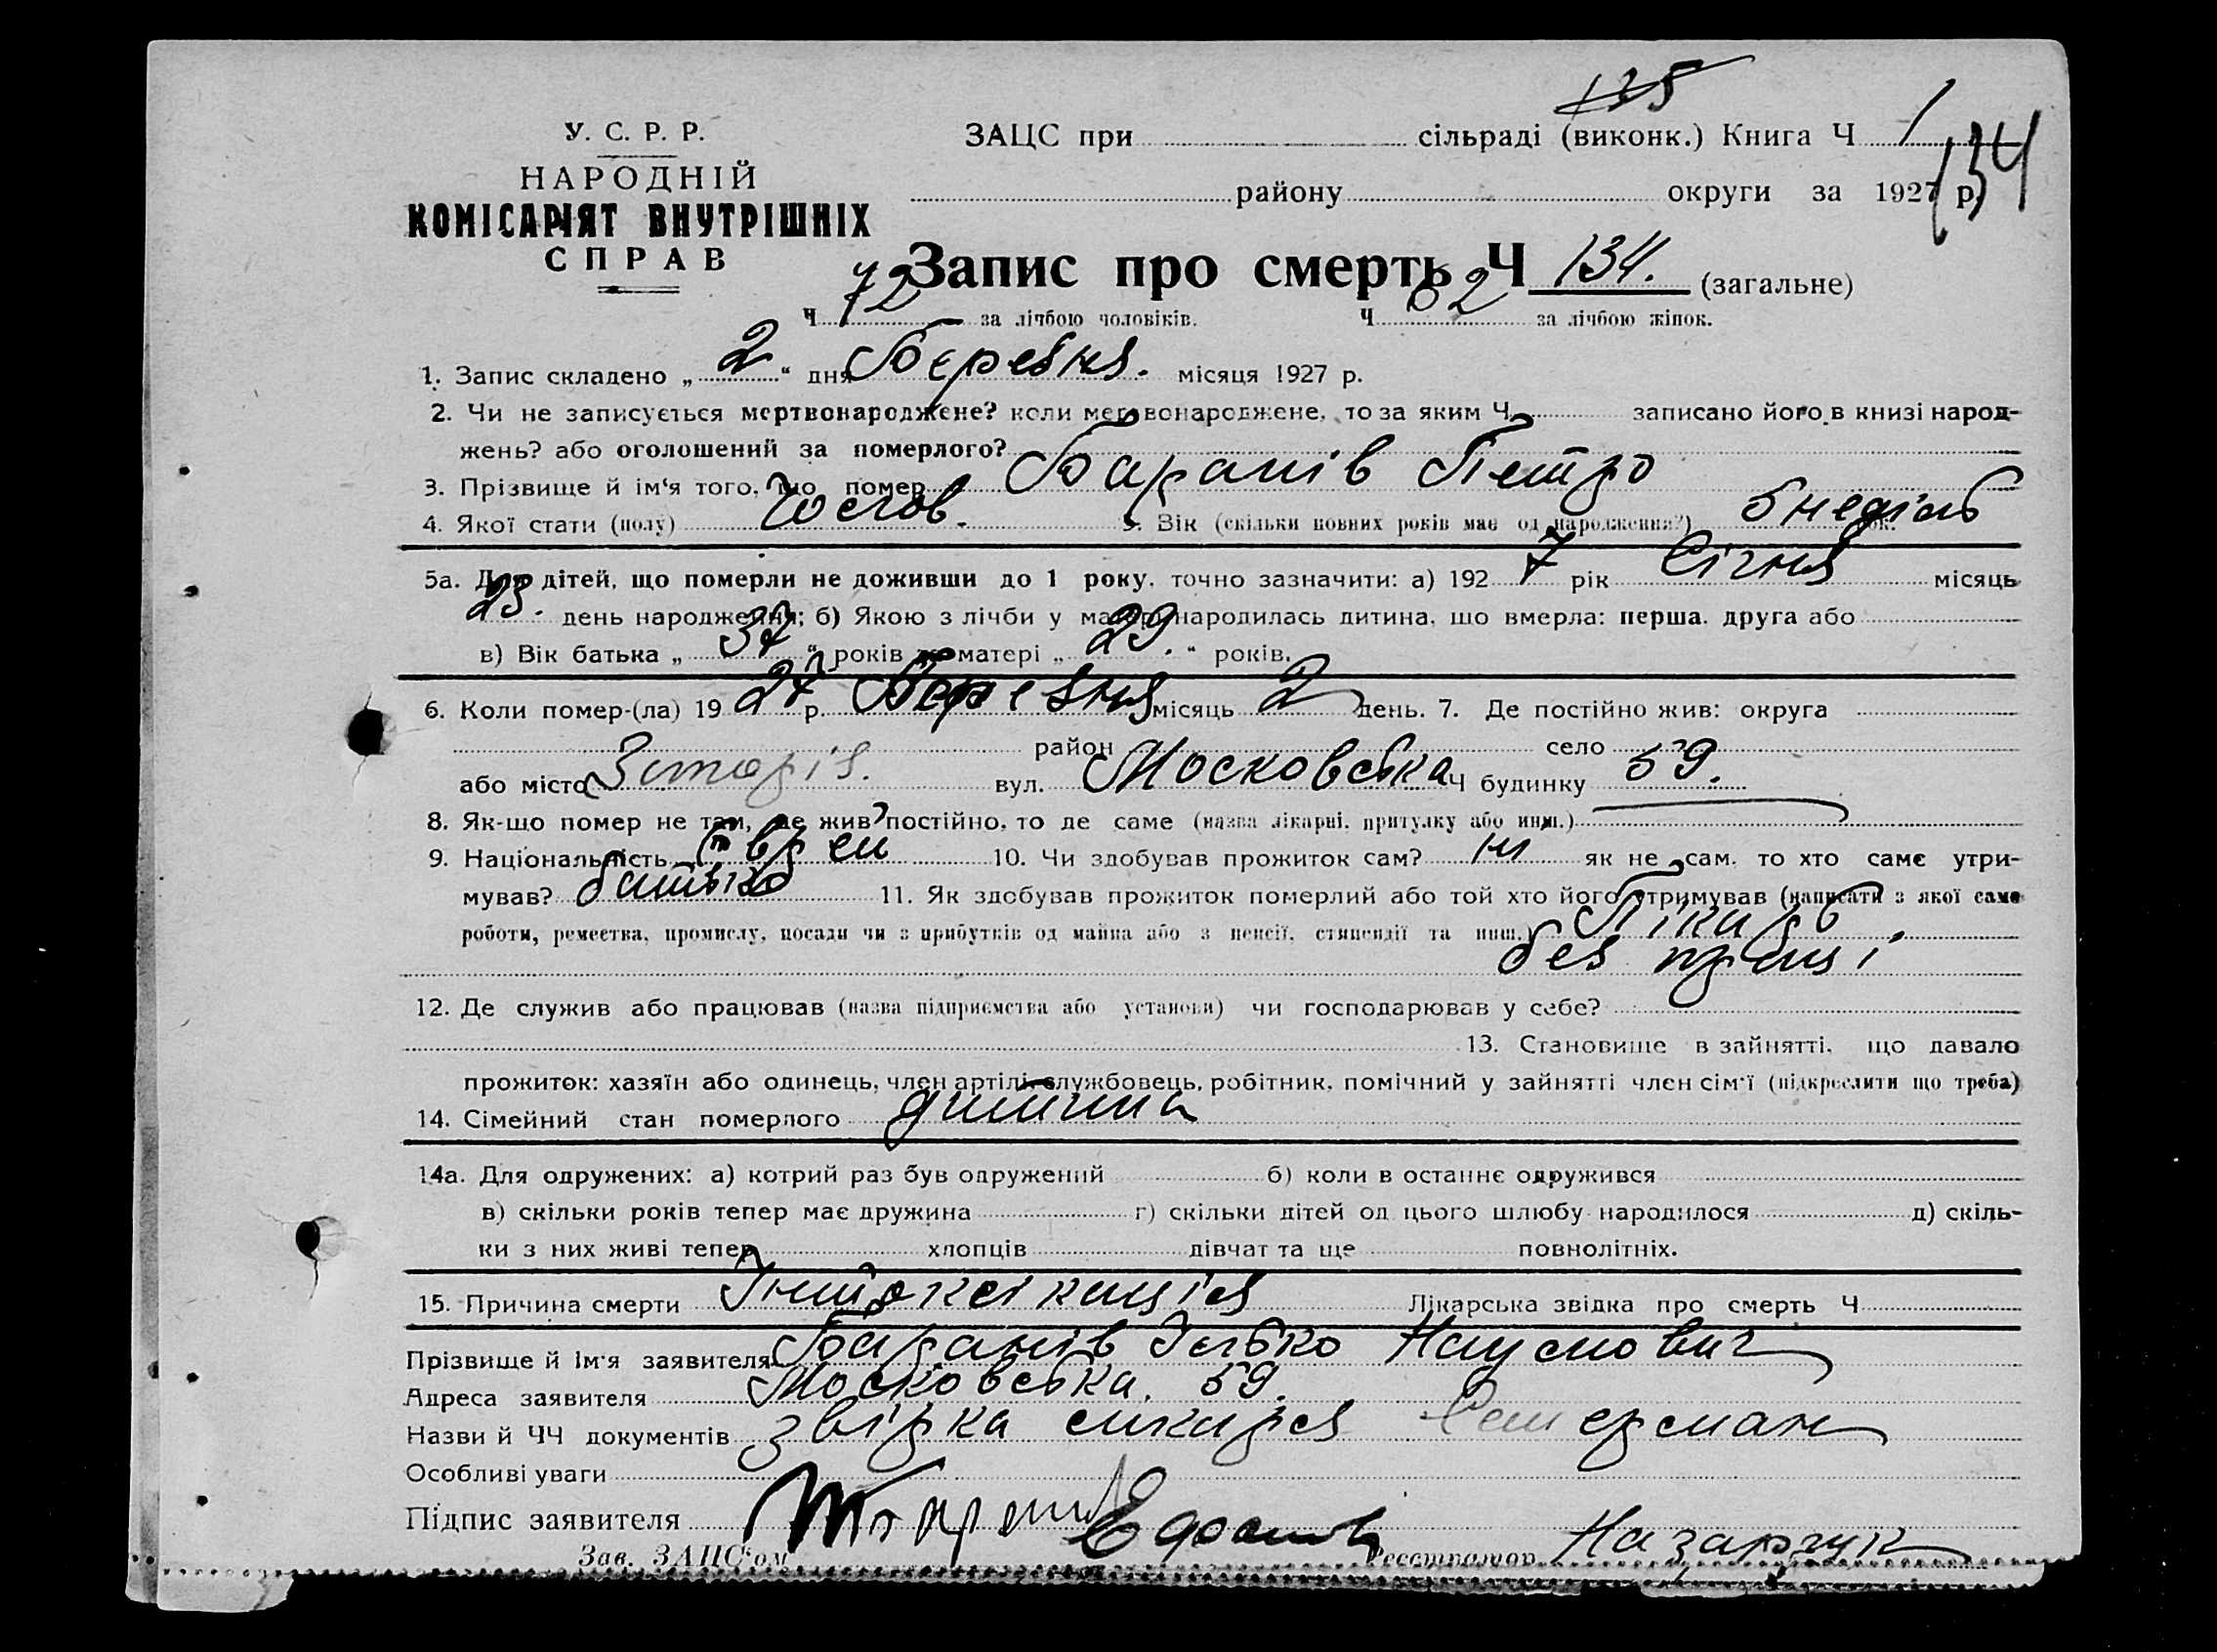 135
У. С. Р. Р.
ЗАЦС при сільраді (виконк.) Книга Ч 1
134
НАРОДНІЙ
району округи за 1927 р.
КОМІСАРІЯТ ВНУТРІШНІХ
СПРАВ
Запис про смерть Ч 134. (загальне)
Ч 72 за лічбою чоловіків. Ч 62 за лічбою жінок.
1. Запис складено „ 2 “ дня Березня. місяця 1927 р.
2. Чи не записується мертвонароджене? коли мертвонароджене, то за яким Ч. записано його в книзі народ-
жень? або оголошений за померлого?
3. Прізвище й ім‘я того, що помер Баранів Петро
4. Якої стати (полу) чолов. 5. Вік (скільки повних років мав од народження?) 5 неділь
5а. Для дітей, що померли не доживши до 1 року, точно зазначити: а) 192 7 рік Січня місяць
23. день народження; б) Якою з лічби у матері народилась дитина, що вмерла: перша, друга або
в) Вік батька „ 37 “ років матері „ 29. “ років.
6. Коли помер-(ла) 19 27 р. Березня місяць 2 день. 7. Де постійно жив: округа
район село
або місто вул. Московська Ч будинку 59.
8. Як-що помер не там, де жив постійно, то де саме (назва лікарні, притулку або инш.)
9. Національність Єврей 10. Чи здобував прожиток сам? ні як не сам, то хто саме утри-
мував? батько 11. Як здобував прожиток померлий або той хто його утримував (написати з якої саме
роботи, ремества, промислу, посади чи з прибутків од майна або з пенсії, стипендії та инш.) Лікарь
без праці
12. Де служив або працював (назва підприємства або установи) чи господарював у себе?
13. Становище в зайнятті, що давало
прожиток: хазяїн або одинець, член артілі, службовець, робітник, помічний у зайнятті член сім‘ї (підкреслити що треба)
14. Сімейний стан померлого дитина
14а. Для одружених: а) котрий раз був одружений б) коли в останнє одружився
в) скільки років тепер має дружина г) скільки дітей од цього шлюбу народилося д) скіль-
ки з них живі тепер хлопців дівчат та ще повнолітніх.
15. Причина смерти Інтоксікація Лікарська звідка про смерть Ч
Прізвище й Ім‘я заявителя Баранів Наумович
Адреса заявителя Московська. 59.
Назви й ЧЧ документів лікаря
Особливі уваги
Підпис заявителя
Зав. ЗАЦС‘ом Реєстратор Назарчук